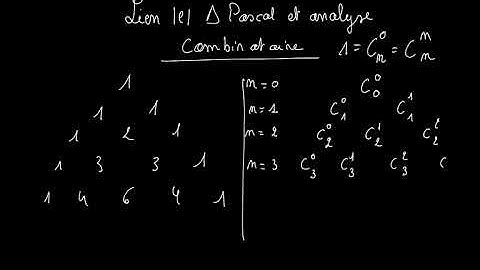 Lien |e| Δ Pascal et analyse
Combinatoire 1 = C_n^0 = C_n^n
1
1 1
1 2 1
1 3 3 1
1 4 6 4 1
n = 0 C_0^0
n = 1 C_1^0 C_1^1
n = 2 C_2^0 C_2^1 C_2^2
n = 3 C_3^0 C_3^1 C_3^2 C